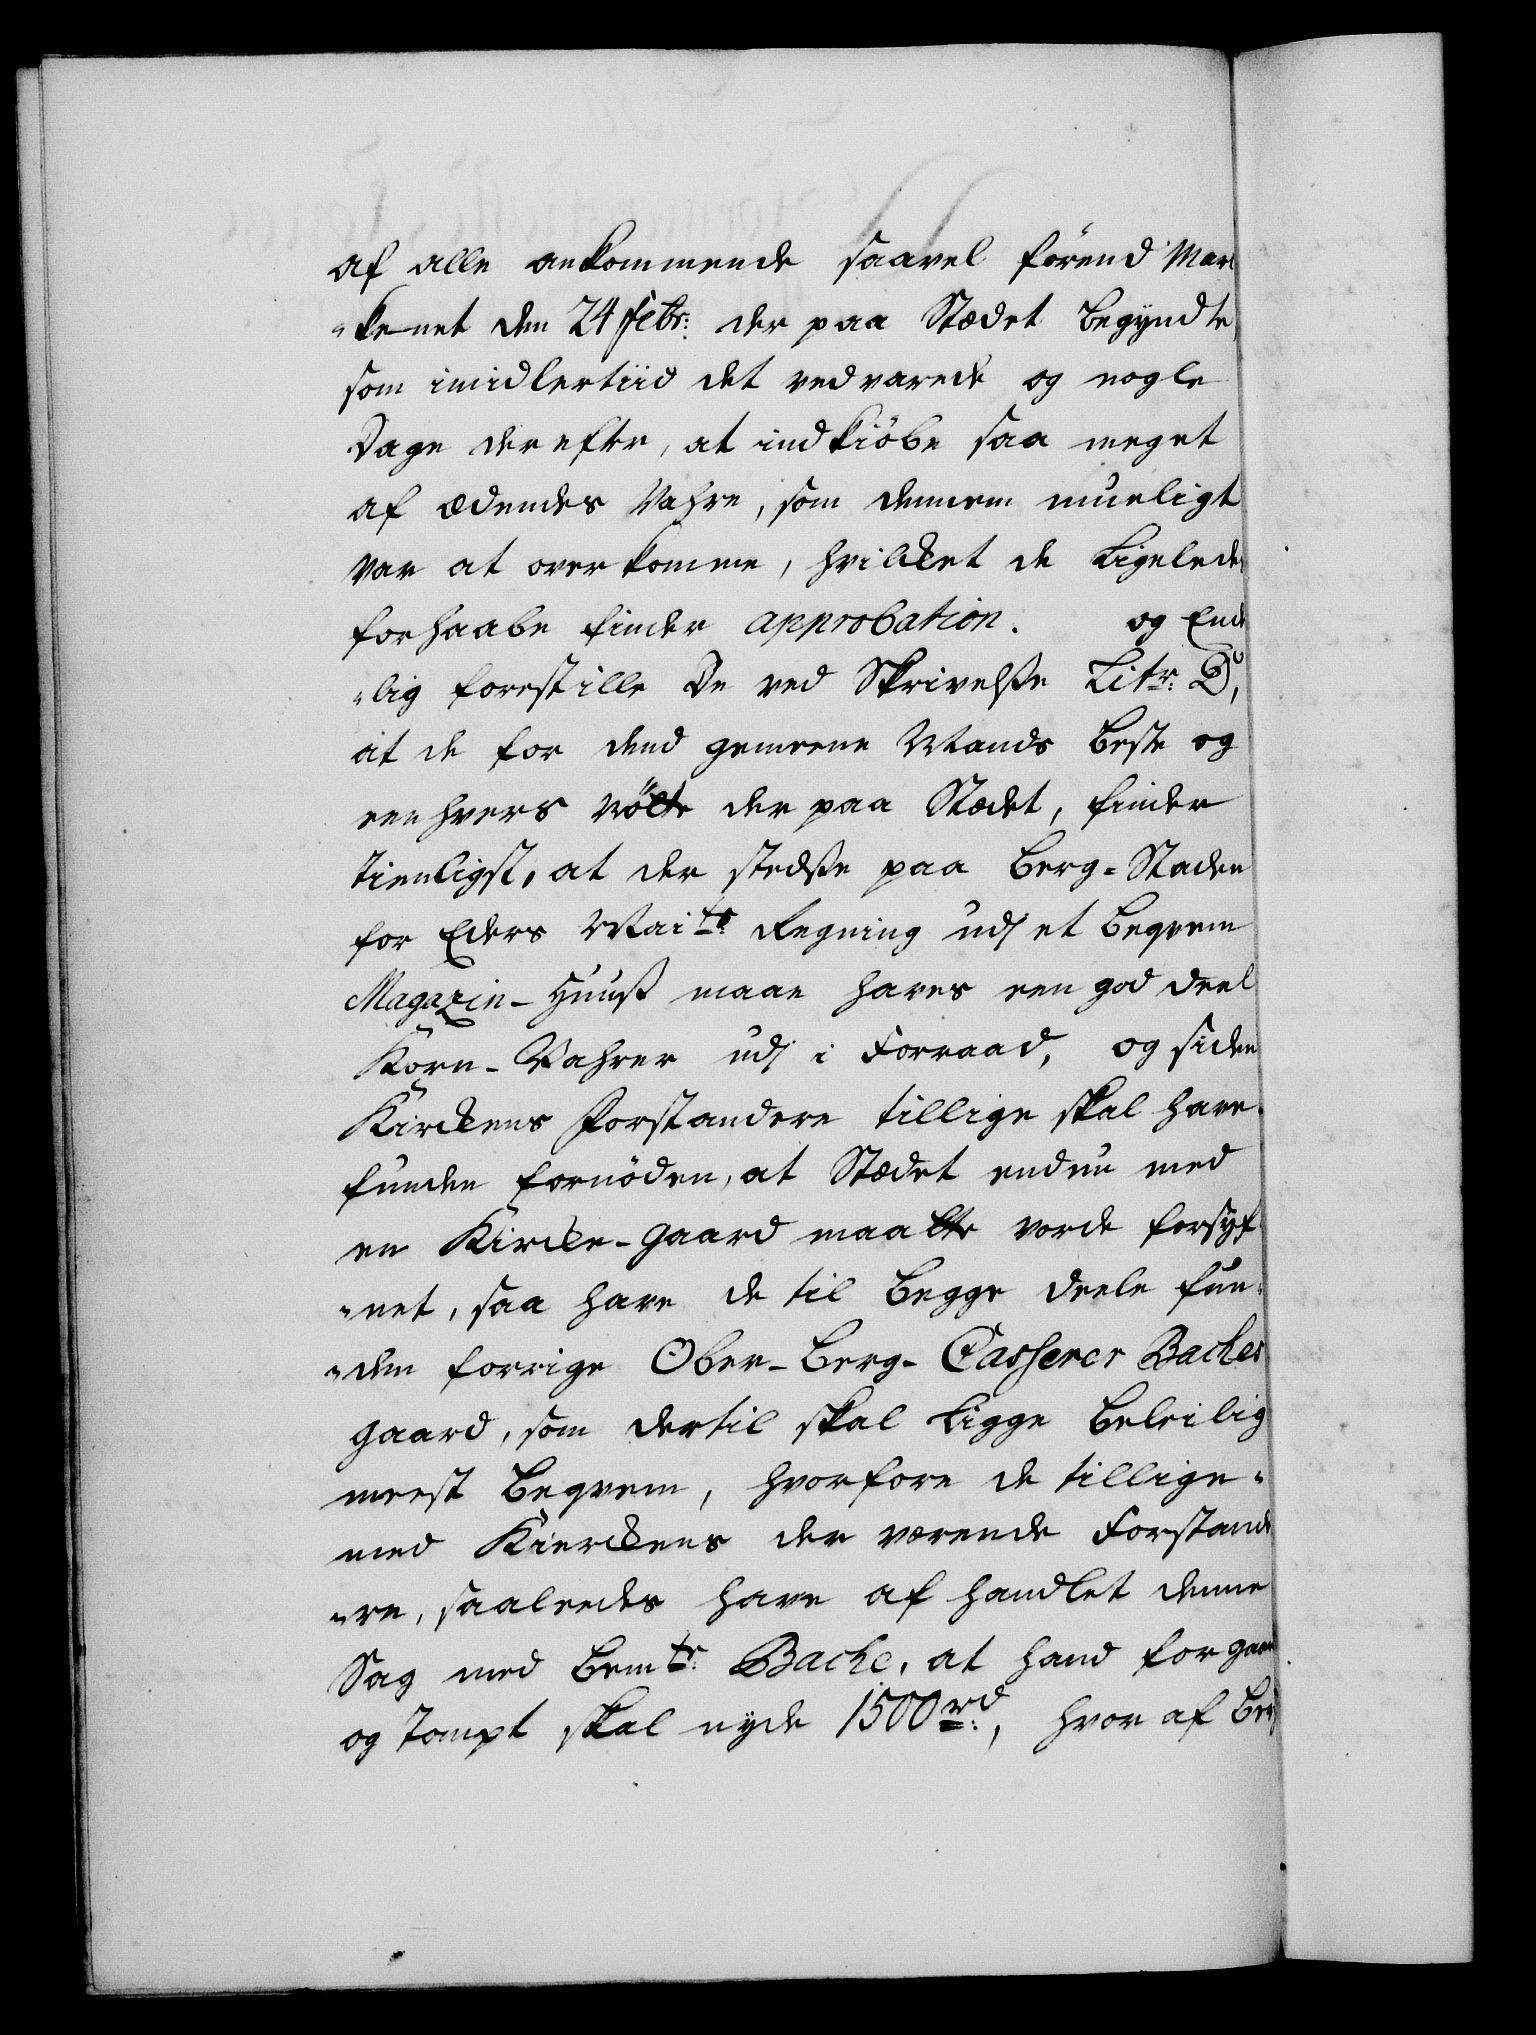 af alle ankommende saavel förend Mar
"kenet den 24 Febr: der paa Stædet begyndte,
som imidlertiid det vedvarede og nogle
Dage derefter, at indkiöbe saa meget
af ædendes Vahre, som dennem mueligt
var at overkomme, hvilcket de Ligelede
forhaabe finder approbation. og Ende
"lig forestille De ved Skrivelsse Litr: D,
at de for dend gemeene Mands beste og
een hvers nötte der paa Stædet, finder
tienligst, at der stedsse paa Berg-Staden
for Eders Maits: Regning udj et beqvem
Magazin-Huuss maae haves een god deel
Korn-Vahrer udj i Forraad, og siden
Kirckens Forstandere tillige skal have
funden fornöden, at Stædet endnu med
en Kircke-Gaard maatte vorde forsyf
"net, saa have de til begge deele fun-
"den forrige Ober-Berg-Casserer Baches
gaard, som dertil skal Ligge beleilig
meest beqvem, hvorfore de tillige-
med Kierckens der værende Forstande
"re, saaleedes have af handlet denne
Sag med bemte: Bache, at hand for gaar
og Tompt skal nyde 1500 rd:, hvor af ber